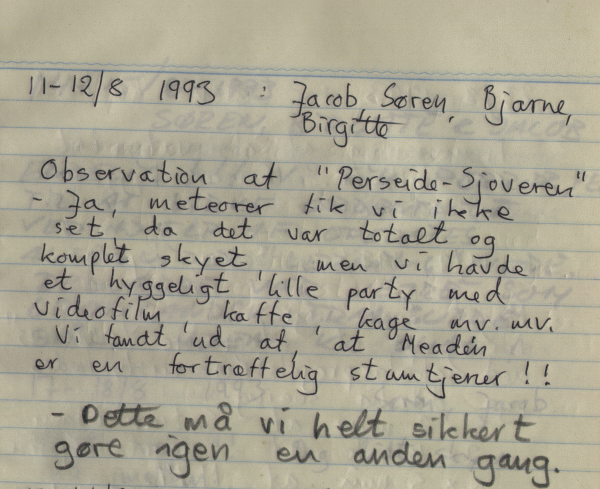 11-12/8 1993 : Jacob, Søren, Bjarne,
Birgitte
Observation af "Perseide-Sjoveren"
- Ja, meteorer fik vi ikke
set da det var totalt og
komplet skyet, men vi havde
et hyggeligt lille party med
videofilm, kaffe, kage mv. mv.
Vi fandt ud af, at Meaden
er en fortræffelig stumtjener!!
- Dette må vi helt sikkert
gøre igen en anden gang.